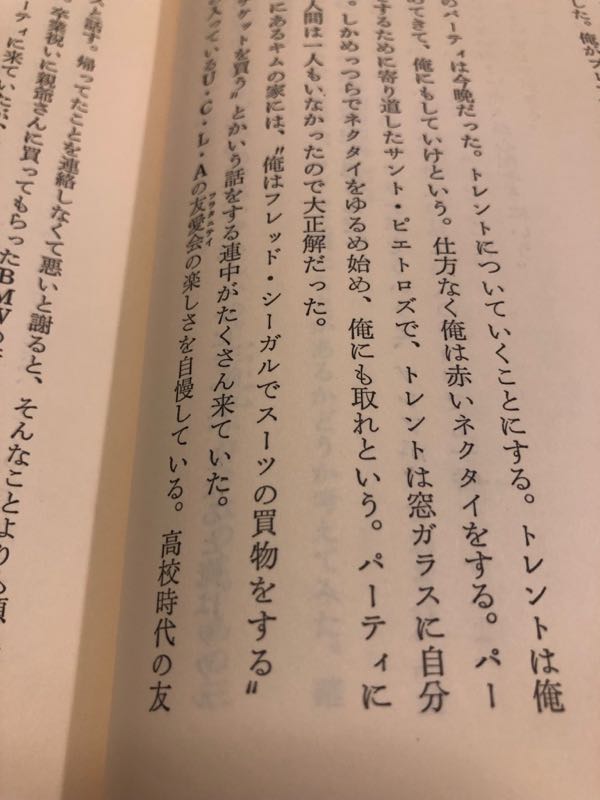 した。俺がプレ
のパーティは今晩だった。トレントについていくことにする。トレントは俺
めてきて、俺にもしていけという。仕方なく俺は赤いネクタイをする。パー
するために寄り道したサント・ピエトロズで、トレントは窓ガラスに自分
。しかめっつらでネクタイをゆるめ始め、俺にも取れという。パーティに
人間は一人もいなかったので大正解だった。
にあるキムの家には、〝俺はフレッド・シーガルでスーツの買物をする〟
ケットを買う〟とかいう話をする連中がたくさん来ていた。
が入っているU・C・L・Aの友愛会フラタニティの楽しさを自慢している。高校時代の友
スと話す。帰ってたことを連絡しなくて悪いと謝ると、そんなことより
。卒業祝いに親爺さんに買ってもらったBMWの
ーティに来ていたが、